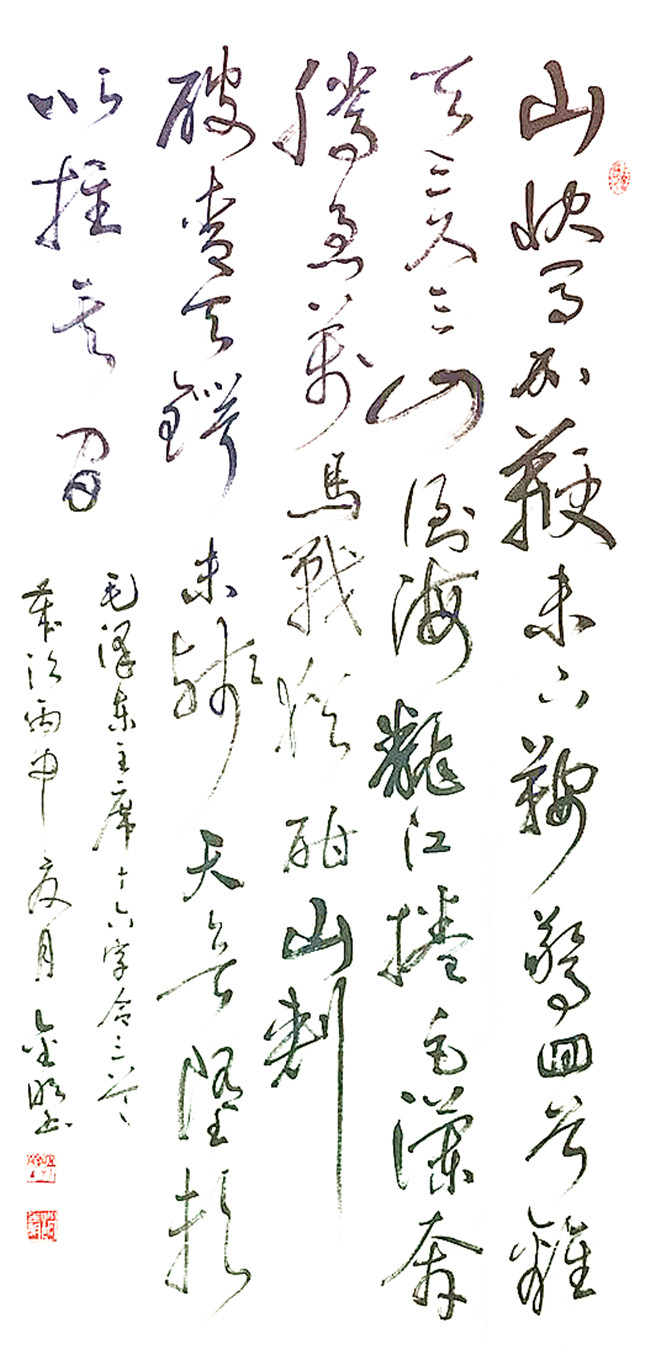 山快馬加鞭未下鞍驚回首離
天三尺三山倒海翻江捲巨瀾奔
騰急萬馬戰猶酣山刺
破青天鍔未殘天欲墮賴
以拄其間
毛澤東主席十六字令三首
歲次丙申夏月金